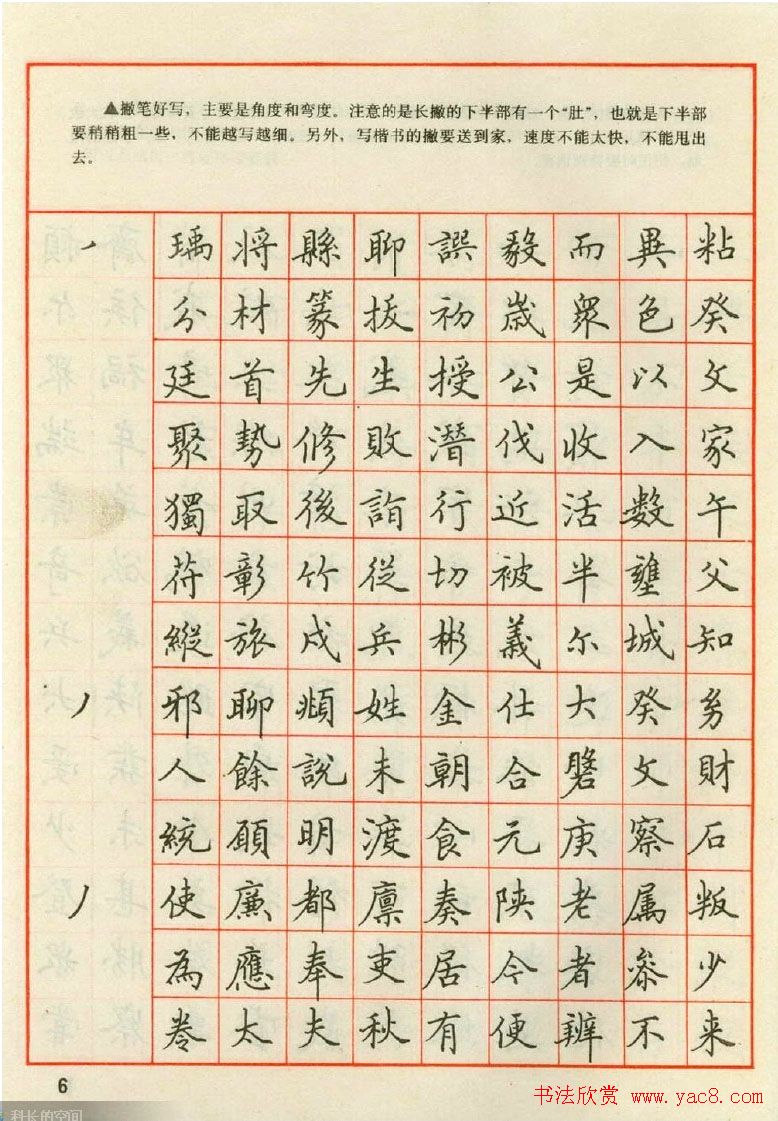 ▲撇笔好写，主要是角度和弯度。注意的是长撇的下半部有一个“肚”，也就是下半部
要稍稍粗一些，不能越写越细。另外，写楷书的撇要送到家，速度不能太快，不能甩出
去。
瑀將縣聊誤毅而異粘
分材篆拔初歲眾色癸
廷首先生授公是以文
聚勢修敗潛伐收入家
獨取後詣行近活數午
苻彰竹從切被半壅父
縱旅戍兵彬義尔城知
丿邪聊頫姓金仕大癸
人餘說未朝合文財
統願明渡食元庚察石
丿使廉都廪奏陕老属叛
為應奉吏居今者叅少
卷太夫秋有便辨不来
6
科长的空间
书法欣赏 www.yac8.com